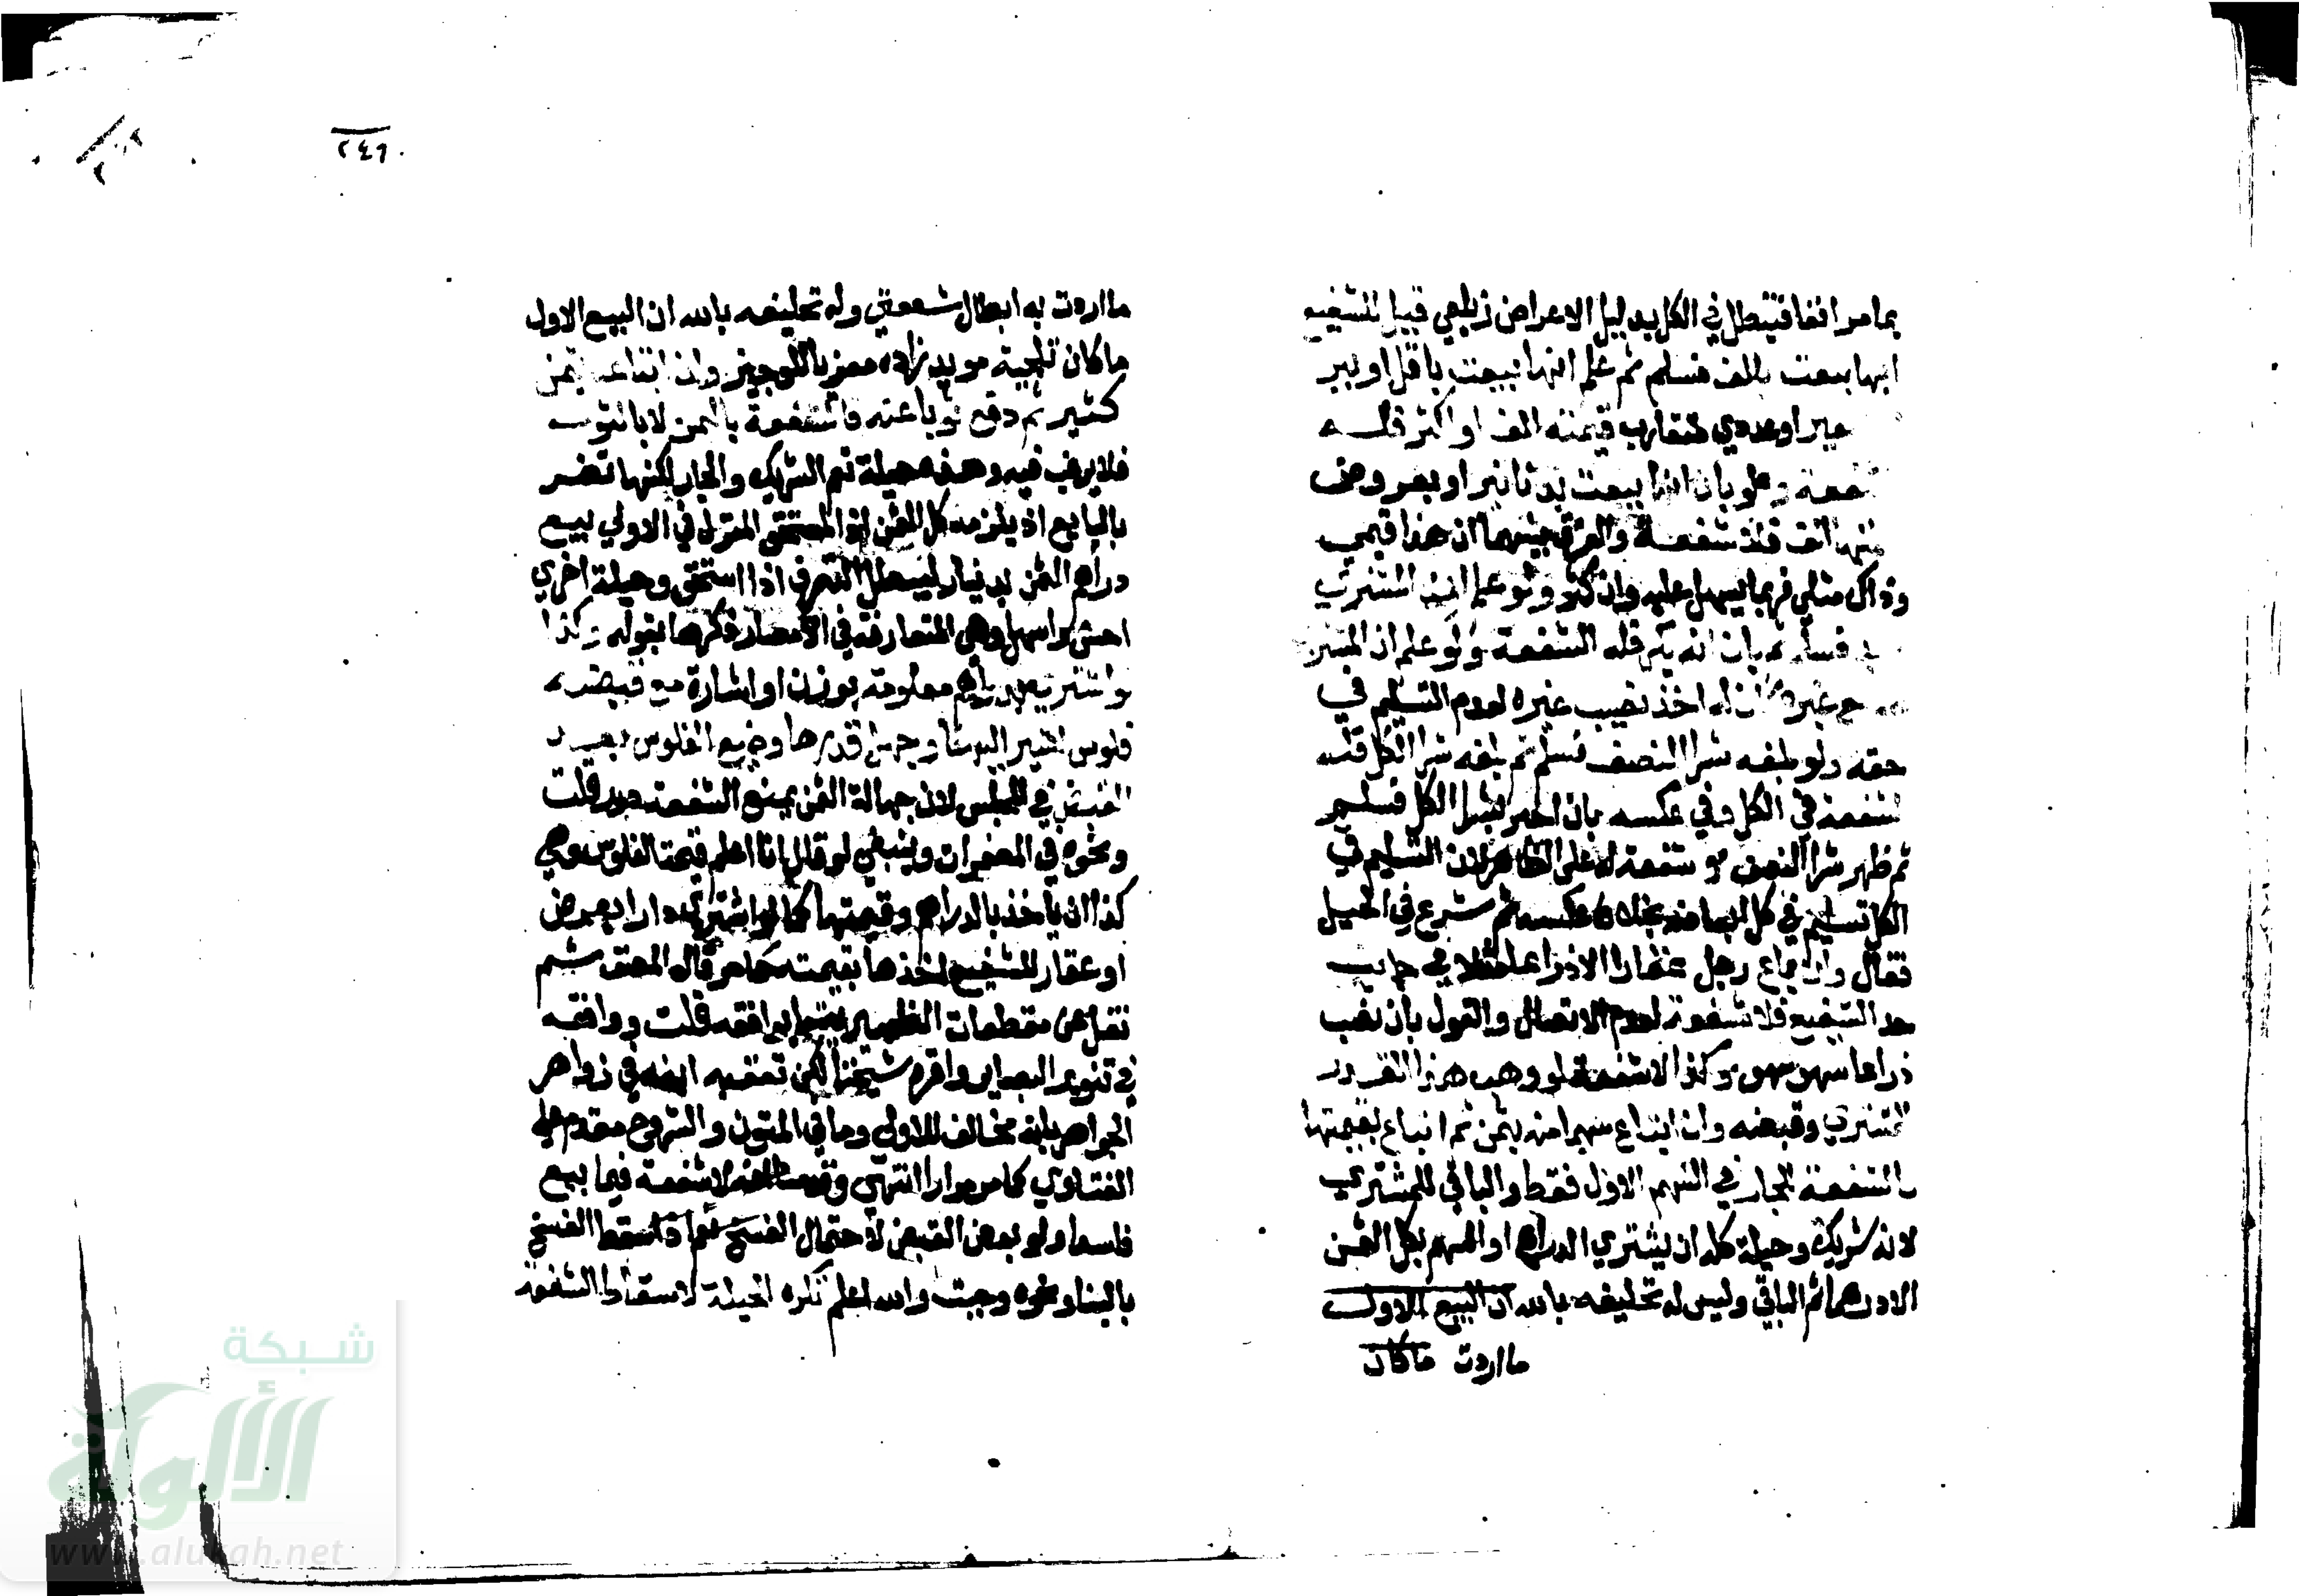 بما مر اتفاقا فتبطل في الكل بدليل الاعراض زيلعي قيل للشفيع
انها بيعت بالف فسلم ثم علم انها بيعت باقل او ببر
او عددي متقارب قيمته الف او اكثر فله
شفعة ولو بان انها بيعت بدنانير او بعروض
الف فلا شفعة والفرق بينهما ان هذا قيمي
وذاك مثلي فربما يسهل عليه وان كثر ولو علم ان المشتري
فسلم ثم بان انه بكر فله الشفعة ولو علم ان المشتري
مع غيره كان له اخذ نصيب غيره لعدم التسليم في
حقه ولو بلغه شرا النصف فسلم ثم بلغه شرا الكل فله
شفعة في الكل وفي عكسه بان اخبر بشرا الكل فسلم
ثم ظهر شرا النصف لا شفعة له على الظاهر لان التسليم في
الكل تسليم في كل ابعاضه بخلاف عكسه ثم شرع في الحيل
فقال وان باع رجل عقارا الا ذراعا مثلا في جانب
حد الشفيع فلا شفعة لعدم الاتصال والقول بان نصب
ذراعا سهو سهو وكذا لا شفعة لو وهب هذا القدر
للمشتري وقبضه وان ابتاع سهما منه بثمن ثم ابتاع بقيمتها
فالشفعة للجار في السهم الاول فقط والباقي للمشتري
لانه شريك وحيلة كله ان يشتري الذراع او السهم بكل الثمن
الا درهما ثم الباقي وليس له تحليفه بالله ان البيع الاول
ما اردت ما كان
٢٤٦
ما اردت به ابطال شفعتي وله تحليفه بالله ان البيع الاول
ما كان تلجية مويد زاده معزيا للوجيز وان ابتاعه بثمن
كثير ثم دفع ثوبا عنه فالشفعة بالثمن لا بالثوب
فلا يرغب فيه وهذه حيلة تعم الشريك والجار لكنها تضر
بالبايع اذ يلزمه كل الثمن اذا استحق المنزل فالاولى بيع
دراهم الثمن بدينار ليبطل الصرف اذا استحق وحيلة اخرى
احسن واسهل وهي المتعارفة في الامصار ذكرها بقوله وكذا
لو اشترى بدراهم معلومة بوزن او اشارة مع قبضة
فلوس اشير اليها وجهل قدرها وضيع الفلوس بعد
القبض في المجلس لان جهالة الثمن يمنع الشفعة درر قلت
ونحوه في المضمرات وينبغي لو قال انا اعلم قيمة الفلوس وهي
كذا ان ياخذ بالدراهم وقيمتها كما لو اشترى دارا بعرض
او عقار للشفيع اخذها بقيمته كما مر قال المصنف ثم
نقل عن مقطعات الظهيرية ما يوافقه قلت ووافقه
في تنوير البصاير واقره شيخنا لكن تعقبه ابنه في زواهر
الجواهر بانه مخالف للاول وما في المتون والشروح مقدم على
الفتاوي كما مر مرارا انتهى وقدمنا انه لا شفعة فيما بيع
فاسدا ولو بعد القبض لاحتمال الفسخ نعم اذا سقط الفسخ
بالبنا ونحوه وجبت والله اعلم تكره الحيلة لاسقاط الشفعة
شبكة
الألوكة
www.alukah.net